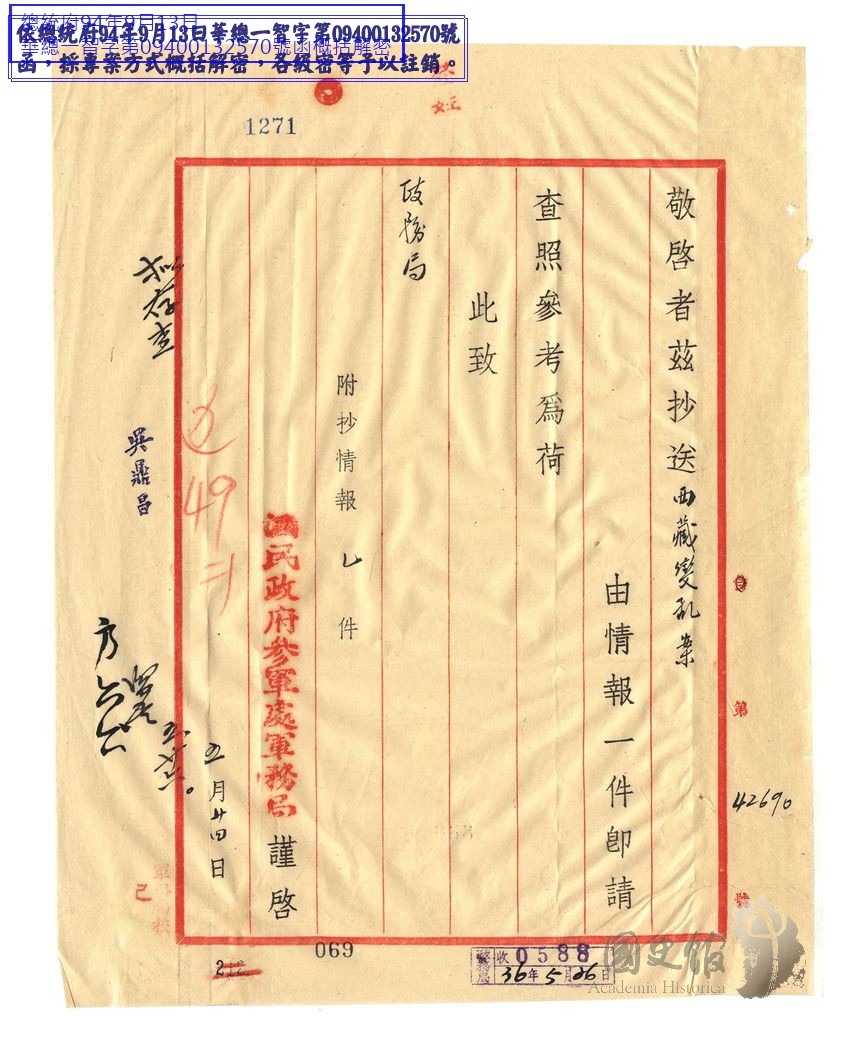 總統府94年9月13日
華總一智字第09400132570號函概括解密
依總統府94年9月13日華總一智字第09400132570號
函，採專案方式概括解密，各級密等予以註銷。
1271
敬啓者茲抄送西藏變亂案
由情報一件即請
查照參考為荷
此致
政務局
附抄情報乙件
國民政府參軍處軍務局謹啓
五月廿四日
擬存查
吳鼎昌
49
第
42690
號
己
069
212
政務局
收0588
36年5月26日
國史館
Academia Historica